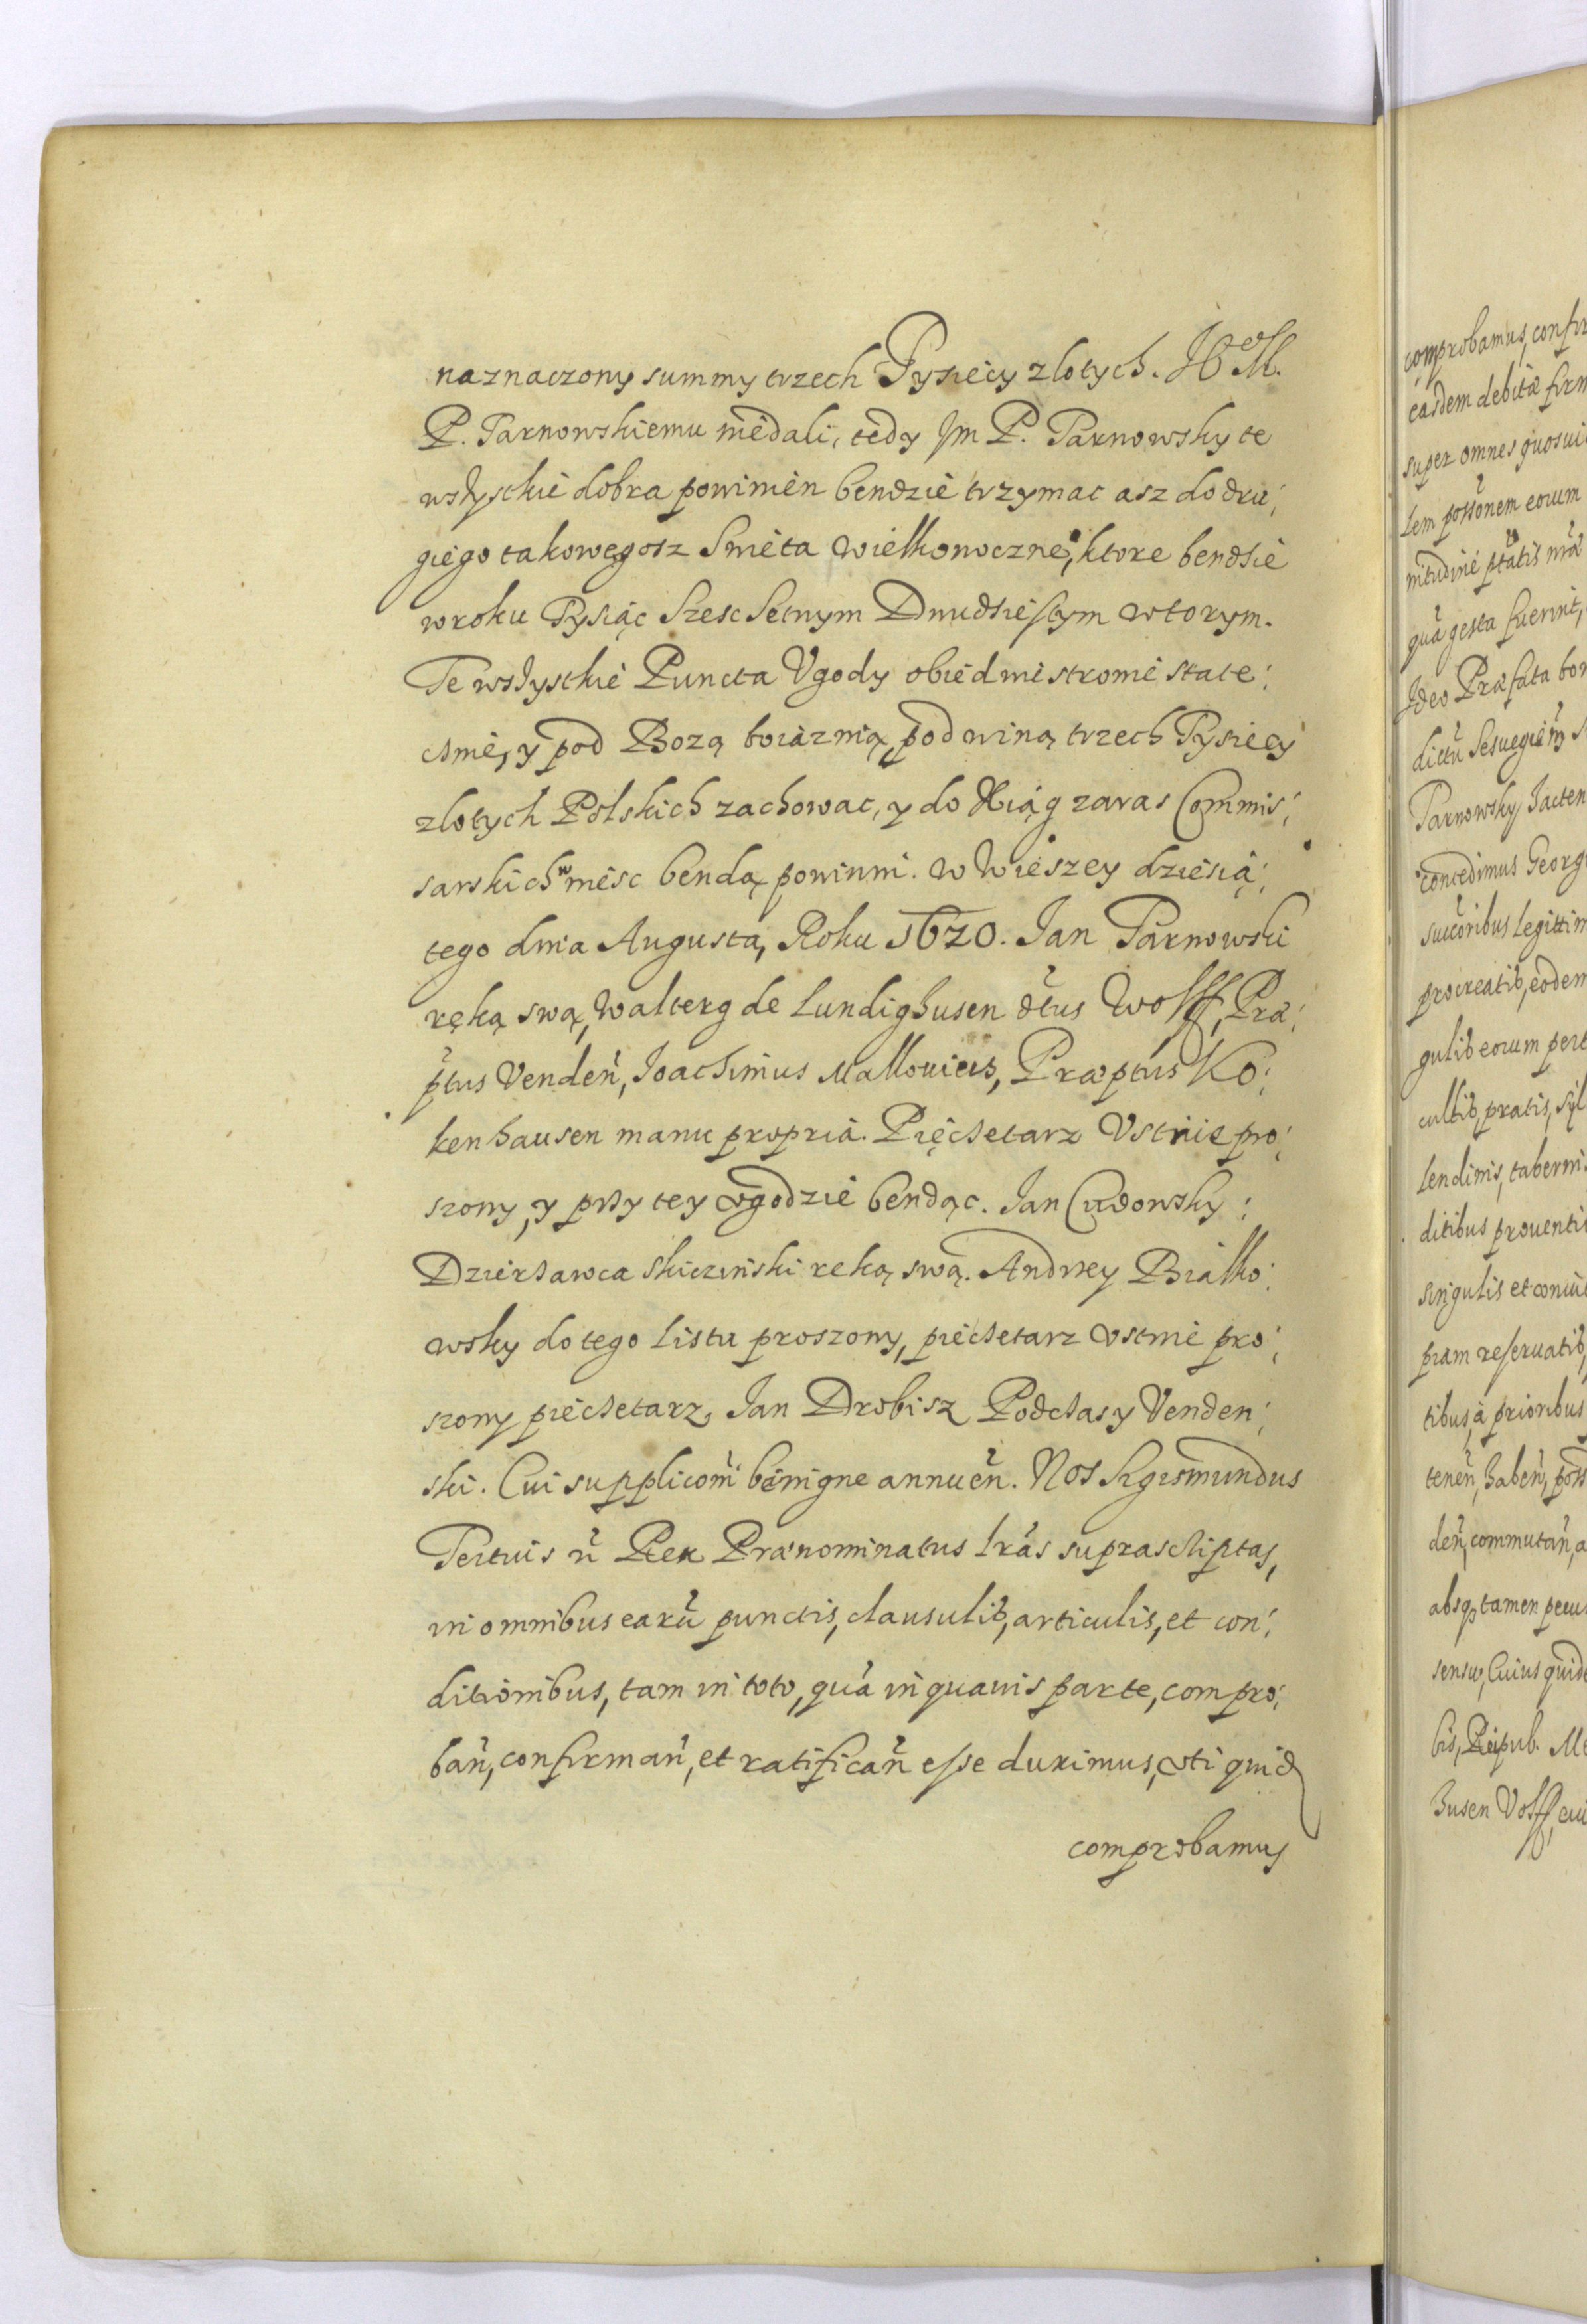 naznaczony summy trzech Tysiecy zlotych. JO M.
P. Tarnowskiemu niedali, tedy Jm P. Tarnowsky te
wszystkie dobra powinien bendzie trzymac asz do dru:
giego takowegosz Swieta Wielkonocznego, ktore bendzie
w roku Tysiąc Szesc Setnym Dwudziestym wtorym.
Te wszystkie Puncta Ugody obiedwie stronie state:
cznie, y pod Bozą boiaznią, pod winą trzech Tysiecy
zlotych Polskich zachowac, y do Xiąg zaras Commis:
sarskich wniesc bendą powinni. W Wieszey dziesią:
tego dnia Augusta, Roku 1620. Jan Tarnowski
ręką swą, Walterg de Lundighusen dtus Wolff, Præ:
ptus Venden, Joachimus Mallouius, Præptus Ko:
kenhausen manu propria. Pięczetarz Ustnie pro:
szony, y przy tey ugodzie bendąc. Jan Cudowsky:
Dzierzawca ręką swą. Andrzey Bialko:
wsky do tego listu proszony, pieczetarz ustnie pro:
szony pieczetarz, Jan Drobisz Podczasy Venden:
ski. Cui suppliconi benigne annuen. Nos Sigismundus
Tertius Rex Prænominatus lras suprascriptas,
in omnibus earu punctis, clausulib, articulis, et con:
ditionibus, tam in toto, qua in quauis parte, compro:
ban, confirman, et ratifican esse duximus, uti quid
comprobamus
comprobamus, confir
easdem debitæ firm
super omnes quosui
lem possonem eorum
qua gesta fuerint,
Ideo Præfata bon
Tarnowsky Jacten
concedimus Georg
succoribus legittim
procreatib, eodem
gulib eorum pert
cultib, pratis, syl
lendinis, tabernis
ditibus prouenti
singulis et coniu
piam reseruatib,
tibus, a prioribus
tenen, haben, poss
den, commutan, a
absq tamen pecu
sensu, Cuius quide
bis, Reipub. Me
husen Volff, cui